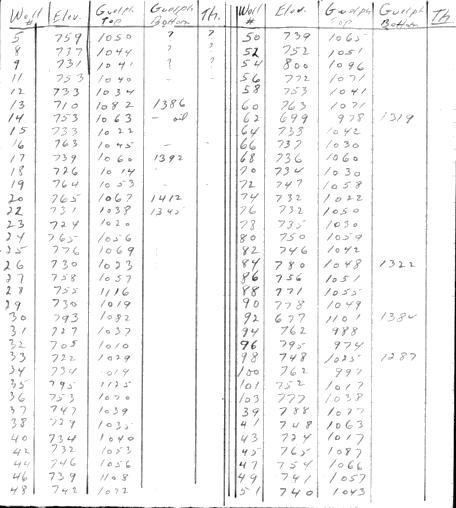 Well # Elev. Guelph Top Guelph Bottom Th. Well # Elev. Guelph Top Guelph Bottom Th
5 759 1050 ? ? 50 739 1065
8 737 1044 ? ? 52 752 1051
9 731 1041 ? ? 54 800 1096
11 753 1040 - - 56 772 1071
12 733 1034 58 753 1041
13 710 1082 1386 60 763 1071
14 753 1063 - oil 62 699 978 1319
15 733 1022 64 738 1042
16 763 1045 - 66 737 1030
17 739 1060 1392 68 736 1060
18 726 1014 70 734 1030
19 764 1053 - 72 747 1058
20 765 1067 1412 74 732 1022
22 731 1038 1345 76 732 1050
23 724 1020 78 735 1030
24 765 1056 80 750 1059
25 776 1069 82 746 1042
26 730 1023 84 780 1048 1322
27 758 1057 86 756 1051
28 755 1116 88 771 1055
29 730 1019 90 778 1049
30 793 1082 92 677 1101 1384
31 727 1037 94 762 988
32 705 1010 96 795 974
33 722 1029 98 748 1025 1287
34 734 1014 100 762 997
35 795 1125 101 752 1017
36 753 1070 103 777 1038
37 747 1039 39 788 1077
38 729 1035 41 748 1063
40 734 1040 43 724 1017
42 732 1053 45 765 1087
44 746 1056 47 754 1066
46 739 1108 49 741 1057
48 742 1072 51 740 1043